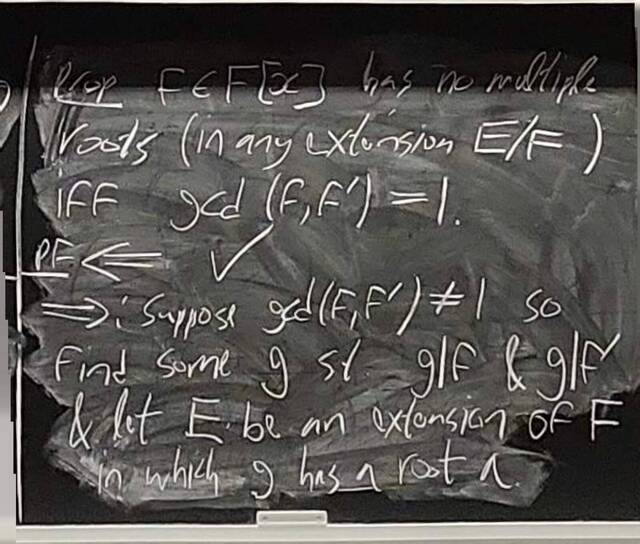 Prop f ∈ F[x] has no multiple
roots (in any extension E/F)
iff gcd (f, f') = 1.
Pf <= ✓
=>: Suppose gcd(f, f') ≠ 1 so
find some g st. g|f & g|f'
& let E be an extension of F
in which g has a root a.